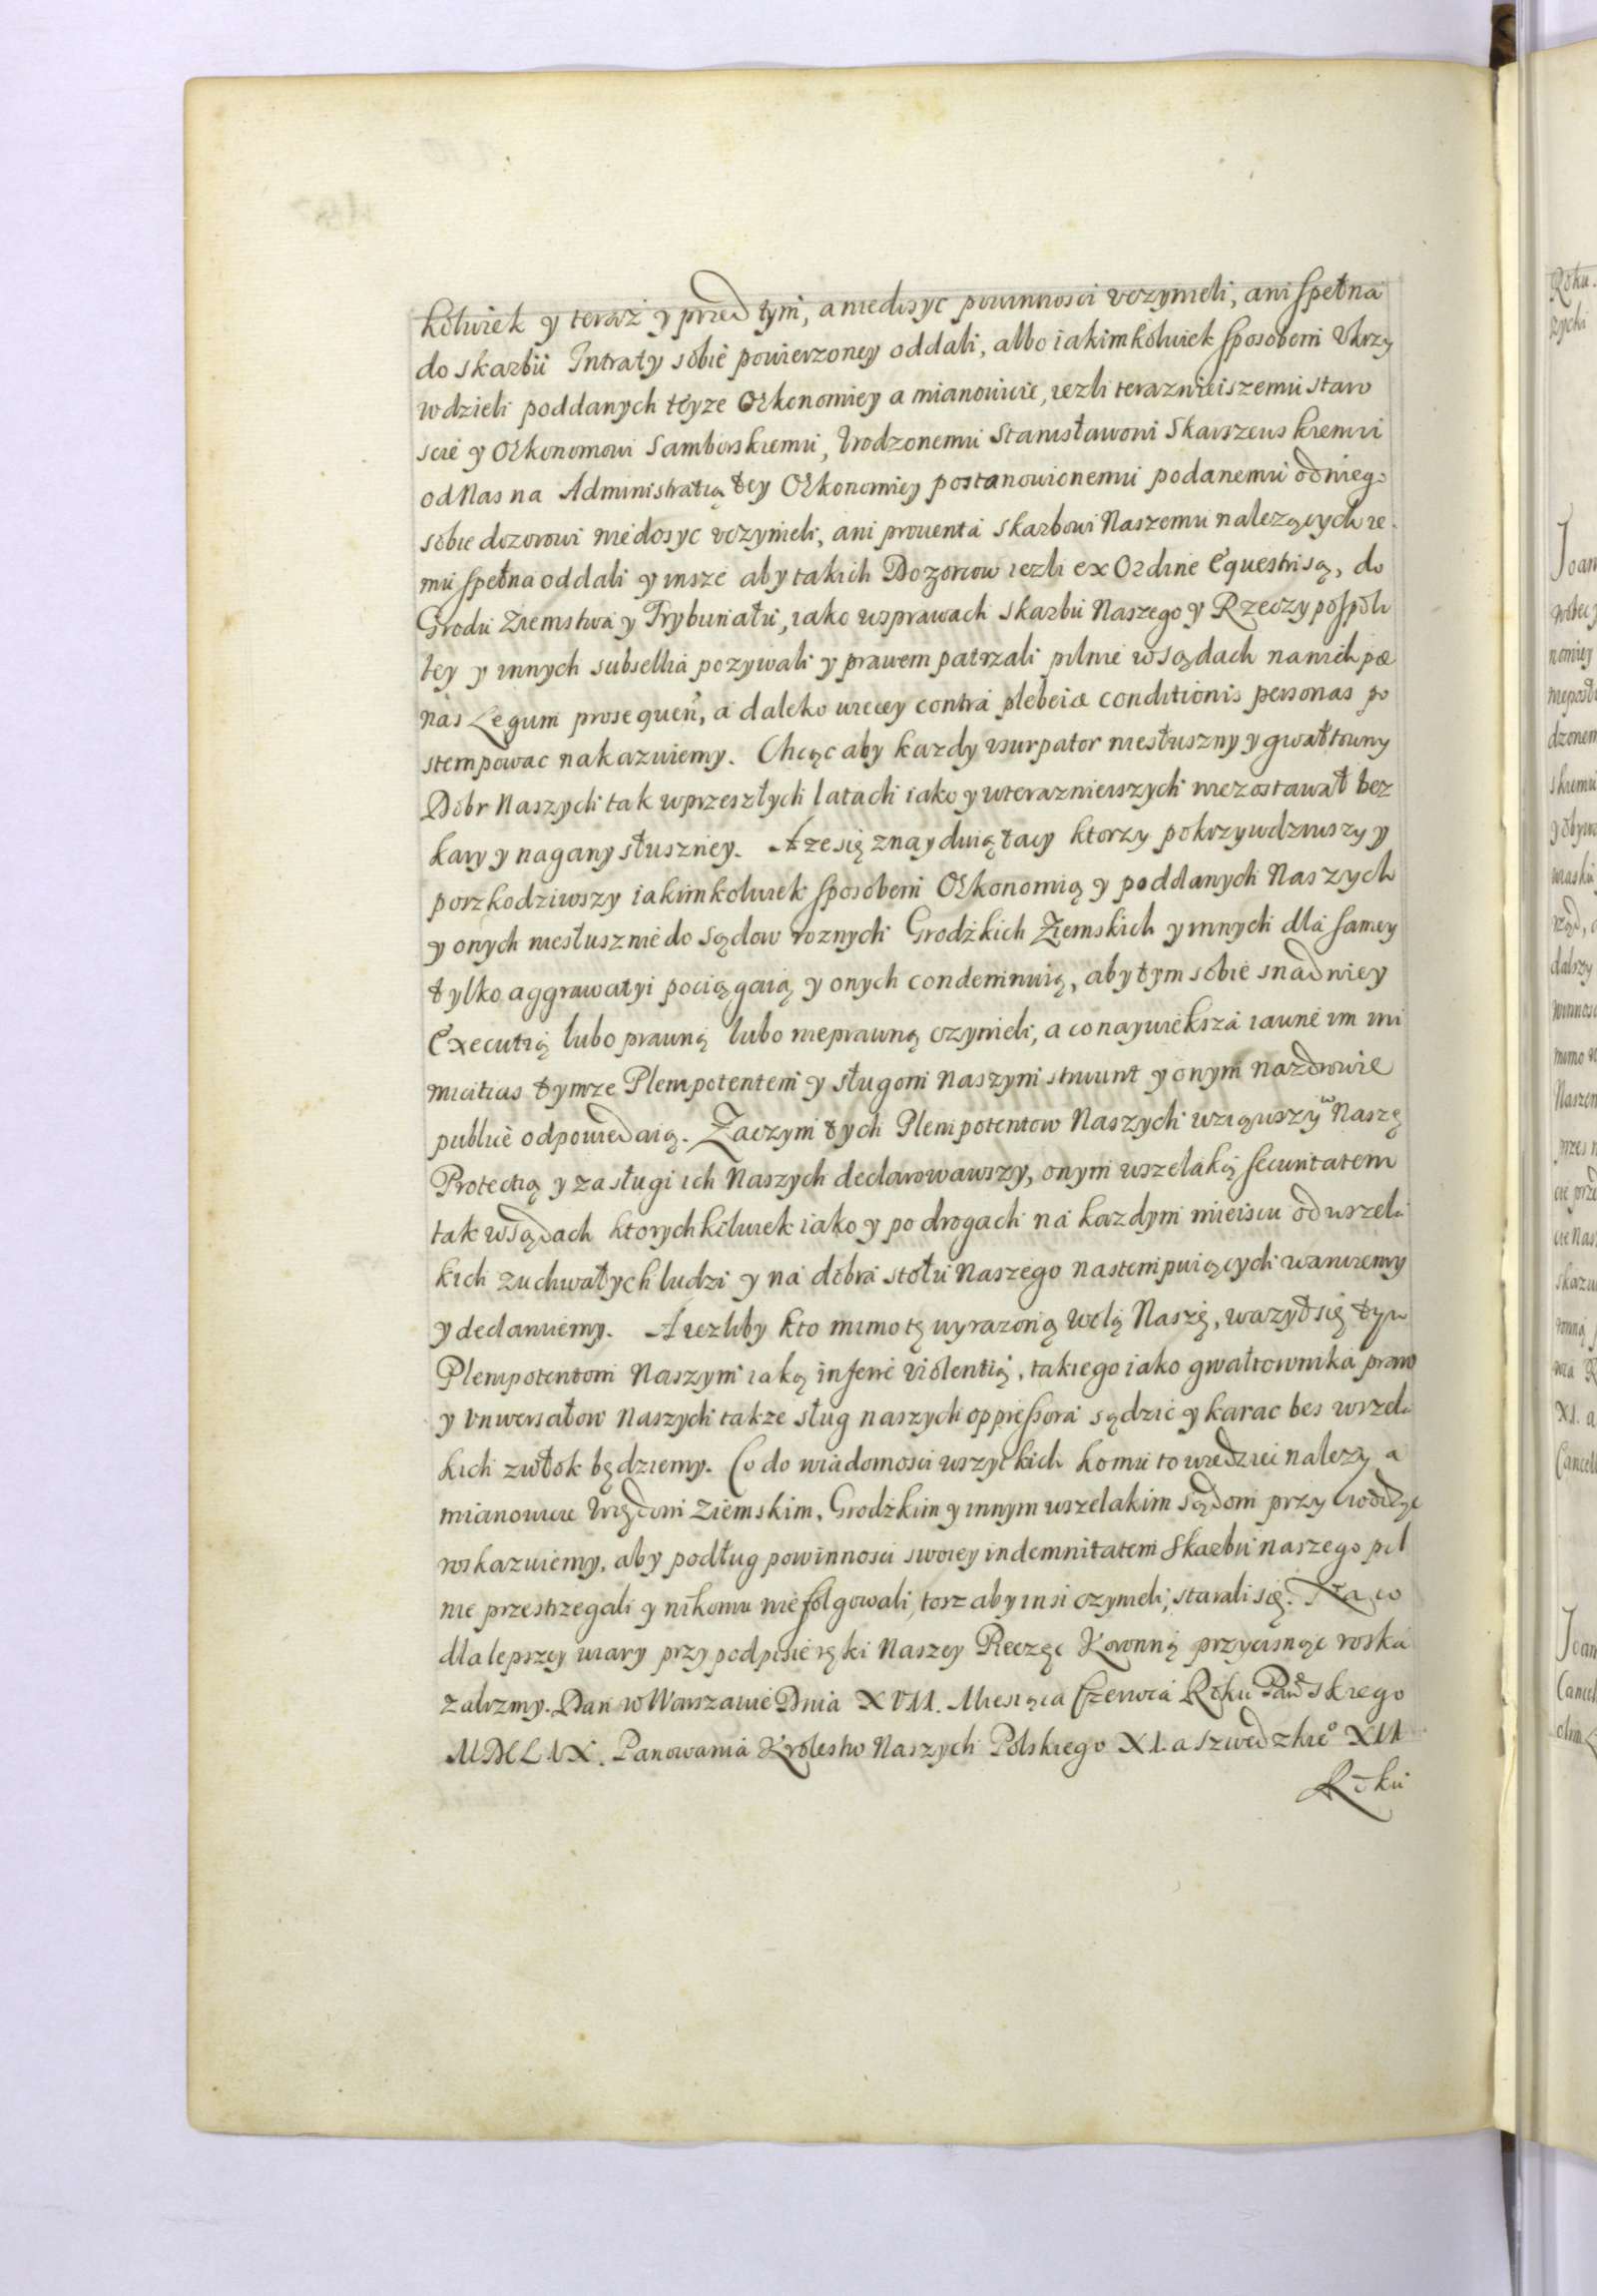 kolwiek y teraz y przed tym, a niedosyc powinnosci vczynieli, ani spełna
do skarbu Intraty sobie powierzoney oddali, albo iakimkolwiek sposobem Vkrzy
wdzieli poddanych teyze Oekonomiey a mianowicie, iezli teraznieiszemu staro
scie y Oekonomowi Samborskiemu, Vrodzonemu Stanisławowi Skarszewskiemu
od Nas na Administratią tey Oekonomiey postanowionemu podanemu od niego
sobie dozorowi niedosyc vczynieli, ani prouenta skarbowi Naszemu nalezących ie
mu spełna oddali y insze aby takich Dozorcow iezli ex Ordine Equestri są, do
Grodu Ziemstwa y Trybunału, iako w sprawach skarbu Naszego y Rzeczypospoli
tey y innych subsellia pozywali y prawem patrzali pilnie w sądach na nich pæ
nas Legum prosequen, a daleko wiecey contra plebeiæ conditionis personas po
stempowac nakazuiemy. Chcąc aby kazdy vsurpator niesłuszny y gwałtowny
Dobr Naszych tak w przeszłych latach iako y w teraznieiszych nie zostawał bez
kary y nagany słuszney. A ze się znayduią tacy ktorzy pokrzywdziwszy y
poszkodziwszy iakimkolwiek sposobem Oekonomią y poddanych Naszych
y onych niesłusznie do Sądow roznych Grodzkich Ziemskich y innych dla samey
tylko aggrawatyi pociągaią y onych condemnuią, aby tym sobie snadniey
Executią lubo prawną lubo nieprawną czynieli, a co naywiększa iawne im ini
micitias tymze Plenipotentem y sługom Naszym struunt y onym na zdrowie
publice odpowiedaią. Zaczym tych Plenipotentow Naszych wziąwszy w Naszę
Protectią y zasługi ich Naszych declarowawszy, onym wszelaką securitatem
tak w sądach ktorychkolwiek iako y po drogach na kazdym mieiscu od wszela
kich zuchwałych ludzi y na dobra stołu Naszego nastempuiących waruiemy
y declaruiemy. A iezliby kto mimo tę wyrazoną wolą Naszę, wazył się tym
Plenipotentom Naszym iaką inferre violentią, takiego iako gwałtownika praw
y Vniwersałow Naszych takze sług naszych oppressora sądzic y karac bes wszela
kich zwłok będziemy. Co do wiadomosci wszytkich komu to wiedziec nalezy a
mianowicie Vrzędom Ziemskim, Grodzkim y innym wszelakim Sądom przywodząc
roskazuiemy, aby podług powinnosci swoiey indemnitatem Skarbu naszego pil
nie przestrzegali y nikomu nie folgowali, tosz aby insi czynieli, starali się. Na co
dla lepszey wiary przy podpisie ręki Naszey Pieczęc Koronną przycisnąc roska
zalizmy. Dan w Warszawie Dnia XVII. Miesiąca Czerwca Roku Pańskiego
MDCLIX. Panowania Krolestw Naszych Polskiego XI. a Szwedzkieo XII
Roku